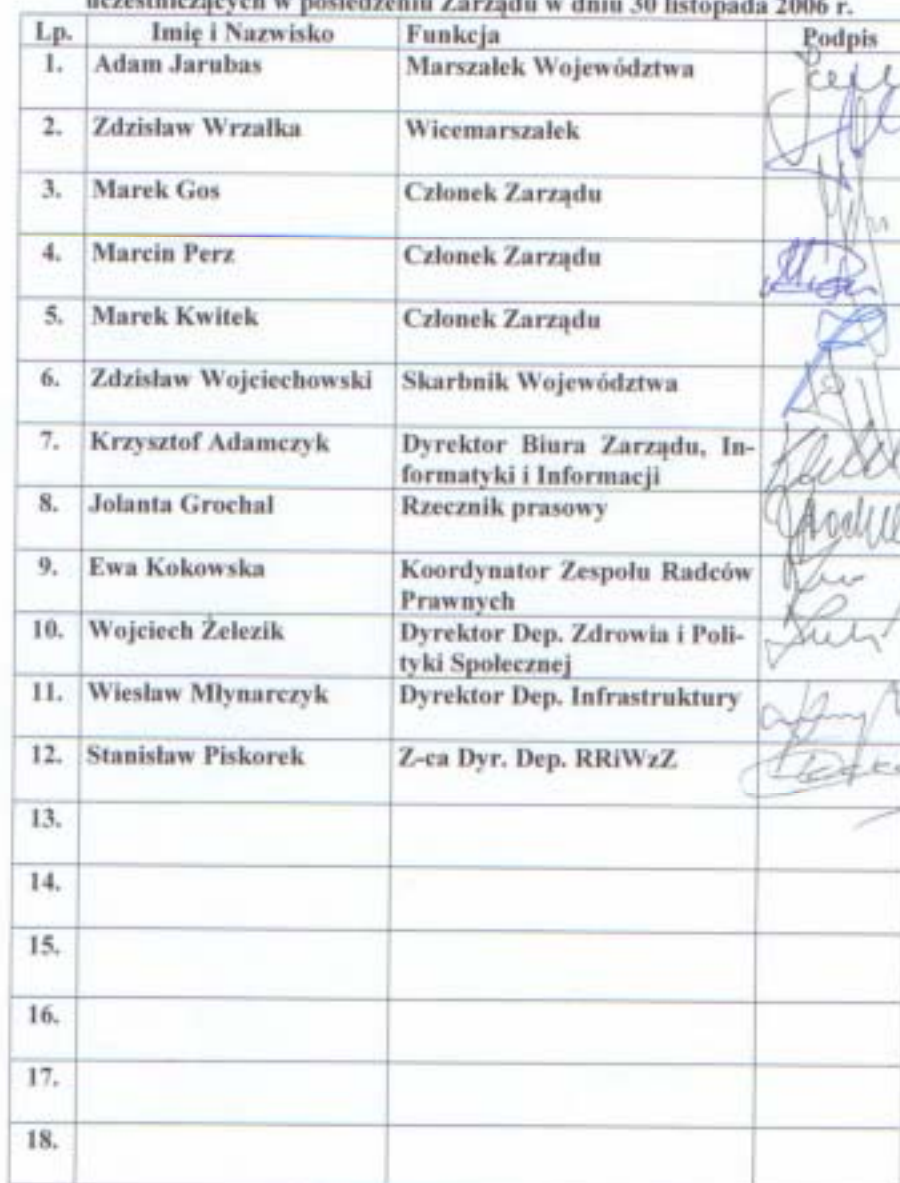 uczestniczących w posiedzeniu Zarządu w dniu 30 listopada 2006 r.
Lp. Imię i Nazwisko Funkcja Podpis
1. Adam Jarubas Marszałek Województwa
2. Zdzisław Wrzałka Wicemarszałek
3. Marek Gos Członek Zarządu
4. Marcin Perz Członek Zarządu
5. Marek Kwitek Członek Zarządu
6. Zdzisław Wojciechowski Skarbnik Województwa
7. Krzysztof Adamczyk Dyrektor Biura Zarządu, In-
formatyki i Informacji
8. Jolanta Grochal Rzecznik prasowy
9. Ewa Kokowska Koordynator Zespołu Radców
Prawnych
10. Wojciech Żelezik Dyrektor Dep. Zdrowia i Poli-
tyki Społecznej
11. Wiesław Młynarczyk Dyrektor Dep. Infrastruktury
12. Stanisław Piskorek Z-ca Dyr. Dep. RRiWzZ
13.
14.
15.
16.
17.
18.